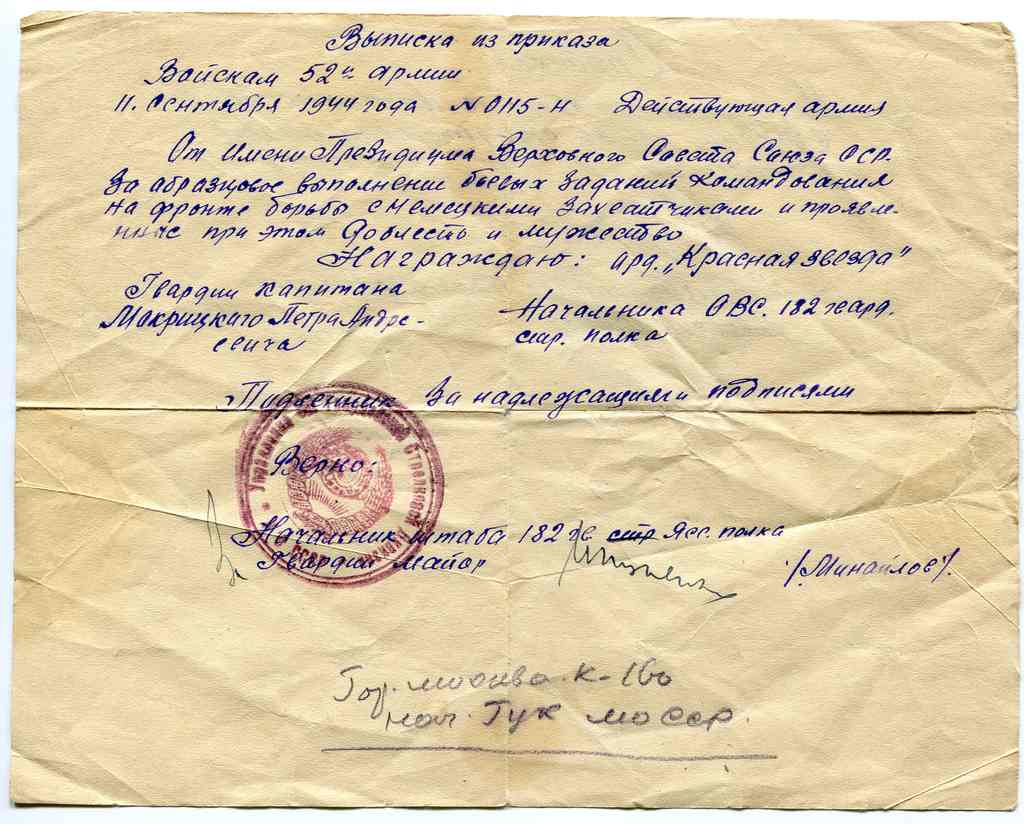 Выписка из приказа
Войскам 52й армии
11. Сентября 1944 года N 0115-н Действующая армия
От имени Президиума Верховного Совета Союза ССР.
За образцовое выполнении боевых заданий командования
на фронте борьбы с немецкими захватчиками и проявле-
нные при этом доблесть и мужество
Награждаю: орд. „Красная звезда"
Гвардии капитана Начальника ОВС. 182 гвард.
Мокрицкого Петра Андре- стр. полка
евича
Подленник за надлежащими подписями
Управление Стрелковой
Верно:
Начальник штаба 182 гв стр Ясс. полка
Гвардии майор /Минайлов/.
Гор. Москва. К-160
нач. Гук мо ссср.